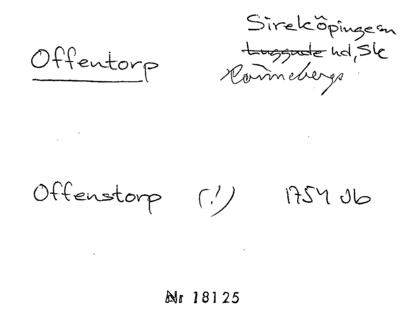 Offentorp Sireköpinge sn
Luggude hd, Sk
Rönnebergs
Offenstorp (!) 1754 Jb
Nr 18125